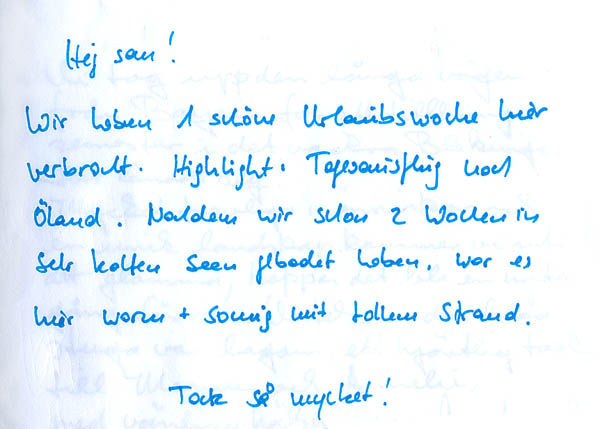 Hej san!
Wir haben 1 schöne Urlaubswoche hier
verbracht. Highlight: Tagesausflug nach
Öland. Nachdem wir schon 2 Wochen in
sehr kalten Seen gebadet haben, war es
hier warm + sonnig mit tollem Strand.
Tack så mycket!